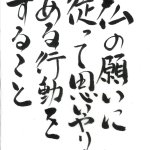 仏の願いに
従って思いやり
ある行動を
すること